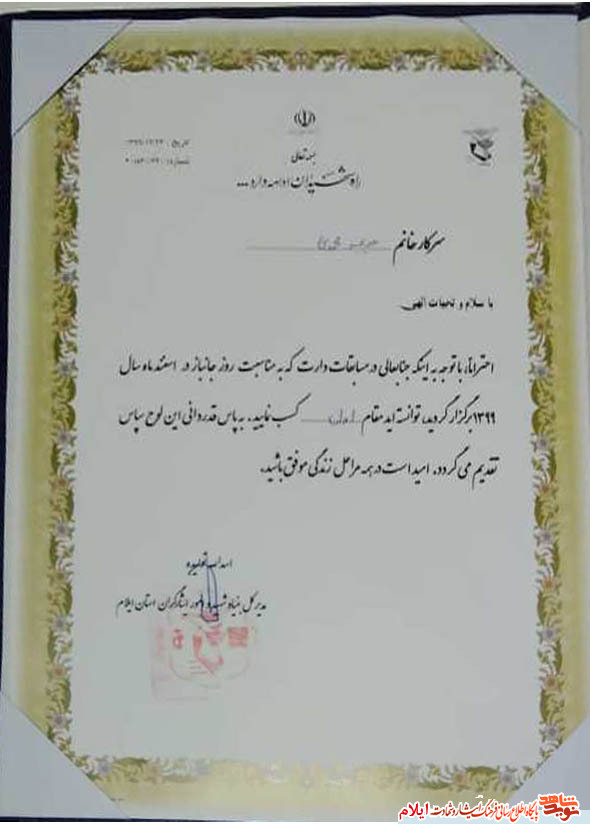 تاریخ: ۱۳۹۹/۱۲/۲۳
شماره:
بسمه تعالی
راه شهیدان ادامه دارد ...
سرکار خانم
با سلام و تحیات الهی
احتراما، با توجه به اینکه جنابعالی در مسابقات دارت که به مناسبت روز جانباز در اسفند ماه سال
۱۳۹۹ برگزار گردید، توانسته اید مقام اول کسب نمایید، به پاس قدردانی این لوح سپاس
تقدیم می گردد، امید است در همه مراحل زندگی موفق باشید.
مدیر کل بنیاد شهید و امور ایثارگران استان ایلام
نوید شاهد
پایگاه اطلاع رسانی فرهنگ ایثار و شهادت ایلام